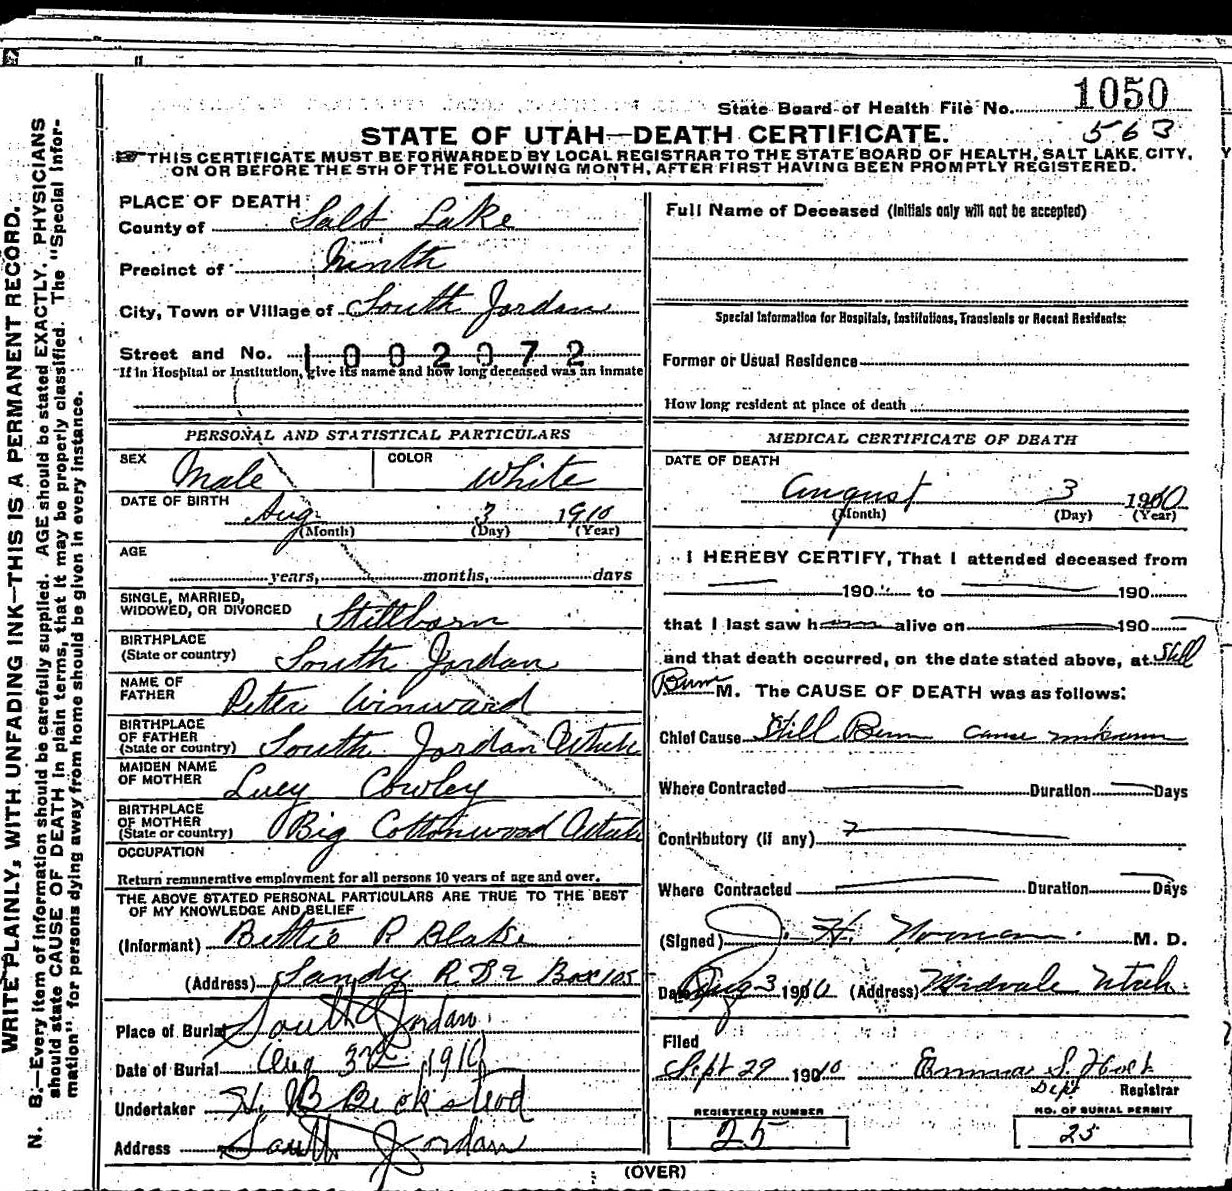 State Board of Health File No. 1050
563
STATE OF UTAH—DEATH CERTIFICATE.
THIS CERTIFICATE MUST BE FORWARDED BY LOCAL REGISTRAR TO THE STATE BOARD OF HEALTH, SALT LAKE CITY,
ON OR BEFORE THE 5TH OF THE FOLLOWING MONTH, AFTER FIRST HAVING BEEN PROMPTLY REGISTERED.
WRITE PLAINLY, WITH UNFADING INK—THIS IS A PERMANENT RECORD.
N. B.—Every item of information should be carefully supplied. AGE should be stated EXACTLY. PHYSICIANS
should state CAUSE OF DEATH in plain terms, that it may be properly classified. The "Special Infor-
mation" for persons dying away from home should be given in every instance.
PLACE OF DEATH
County of Salt Lake
Precinct of Ninth
City, Town or Village of South Jordan
Street and No. 1002072
If in Hospital or Institution, give its name and how long deceased was an inmate
PERSONAL AND STATISTICAL PARTICULARS
SEX Male COLOR White
DATE OF BIRTH Aug 3 1910
(Month) (Day) (Year)
AGE
years, months, days
SINGLE, MARRIED,
WIDOWED, OR DIVORCED Stillborn
BIRTHPLACE
(State or country) South Jordan
NAME OF
FATHER Peter Winward
BIRTHPLACE
OF FATHER
(State or country) South Jordan Utah
MAIDEN NAME
OF MOTHER Lucy Cowley
BIRTHPLACE
OF MOTHER
(State or country) Big Cottonwood Utah
OCCUPATION
Return remunerative employment for all persons 10 years of age and over.
THE ABOVE STATED PERSONAL PARTICULARS ARE TRUE TO THE BEST
OF MY KNOWLEDGE AND BELIEF
(Informant) Bettie R Blake
(Address) Sandy R D 2 Box 105
Place of Burial South Jordan
Date of Burial Aug 3rd, 1910
Undertaker H. B Beckstead
Address South Jordan
Full Name of Deceased (Initials only will not be accepted)
Special Information for Hospitals, Institutions, Transients or Recent Residents:
Former or Usual Residence
How long resident at place of death
MEDICAL CERTIFICATE OF DEATH
DATE OF DEATH
August 3 1910
(Month) (Day) (Year)
I HEREBY CERTIFY, That I attended deceased from
190 to 190
that I last saw h alive on 190
and that death occurred, on the date stated above, at Still
Born M. The CAUSE OF DEATH was as follows:
Chief Cause Still Born cause unknown
Where Contracted Duration Days
Contributory (if any)
Where Contracted Duration Days
(Signed) J. H. Norman M. D.
Date Aug 3 1910 (Address) Midvale Utah
Filed
Sept 29 1910 Emma S. Holt
Dept Registrar
REGISTERED NUMBER
25
NO. OF BURIAL PERMIT
25
(OVER)